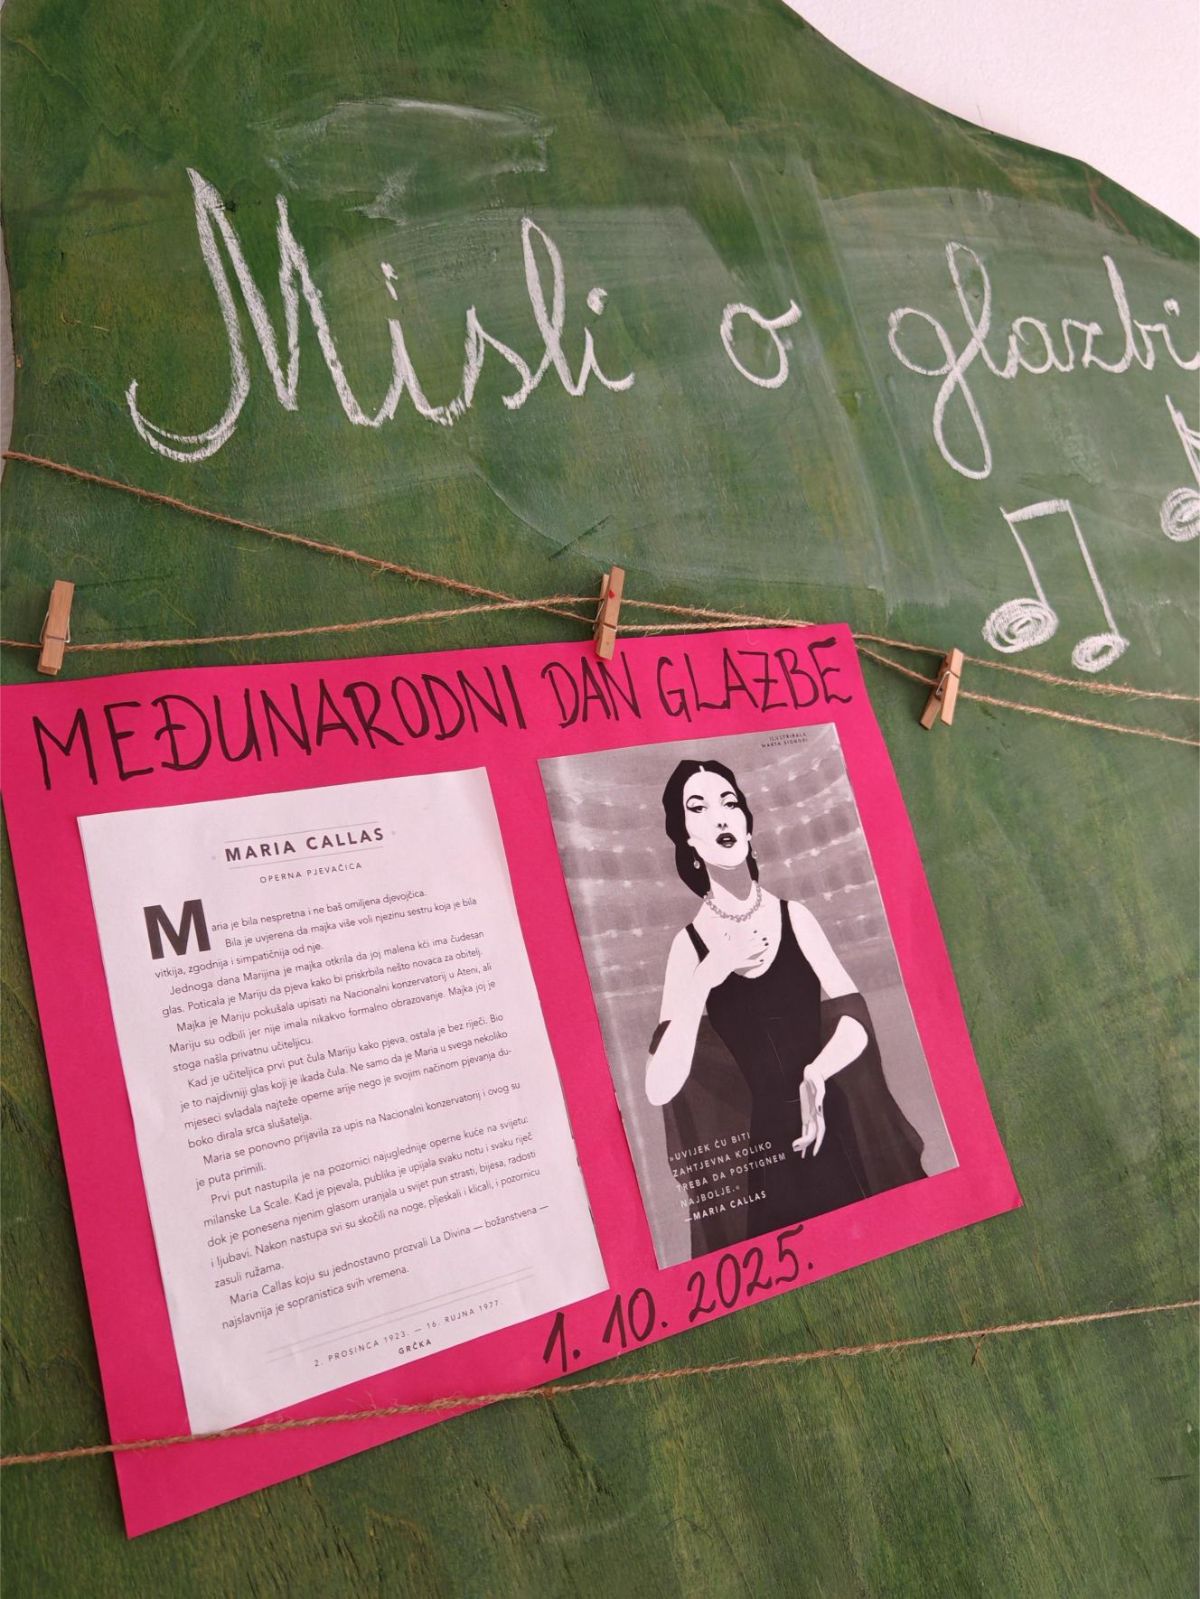 Misli o glazbi
MEĐUNARODNI DAN GLAZBE
MARIA CALLAS
OPERNA PJEVAČICA
Maria je bila nespretna i ne baš omiljena djevojčica.
Bila je uvjerena da majka više voli njezinu sestru koja je bila
vitkija, zgodnija i simpatičnija od nje.
Jednoga dana Marijina je majka otkrila da joj malena kći ima čudesan
glas. Poticala je Mariju da pjeva kako bi priskrbila nešto novaca za obitelj.
Majka je Mariju pokušala upisati na Nacionalni konzervatorij u Ateni, ali
Mariju su odbili jer nije imala nikakvo formalno obrazovanje. Majka joj je
stoga našla privatnu učiteljicu.
Kad je učiteljica prvi put čula Mariju kako pjeva, ostala je bez riječi. Bio
je to najdivniji glas koji je ikada čula. Ne samo da je Maria u svega nekoliko
mjeseci svladala najteže operne arije nego je svojim načinom pjevanja du-
boko dirala srca slušatelja.
Maria se ponovno prijavila za upis na Nacionalni konzervatorij i ovog su
je puta primili.
Prvi put nastupila je na pozornici najuglednije operne kuće na svijetu:
milanske La Scale. Kad je pjevala, publika je upijala svaku notu i svaku riječ
dok je ponesena njenim glasom uranjala u svijet pun strasti, bijesa, radosti
i ljubavi. Nakon nastupa svi su skočili na noge, pljeskali i klicali, i pozornicu
zasuli ružama.
Maria Callas koju su jednostavno prozvali La Divina — božanstvena —
najslavnija je sopranistica svih vremena.
2. PROSINCA 1923. — 16. RUJNA 1977.
GRČKA
ILUSTRIRALA
MARTA SIGNORI
»UVIJEK ĆU BITI
ZAHTJEVNA KOLIKO
TREBA DA POSTIGNEM
NAJBOLJE.«
—MARIA CALLAS
1. 10. 2025.